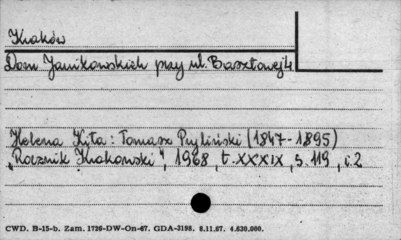 Kraków
Dom Janikowskich przy ul. Basztowej 4
Helena Kita : Tomasz Pryliński (1847-1895)
„Rocznik Krakowski", 1968, t. XXXIX, s. 119, i. 2
CWD. B-15-b. Zam. 1726-DW-On-67. GDA-3198. 8.11.67. 4.630.000.